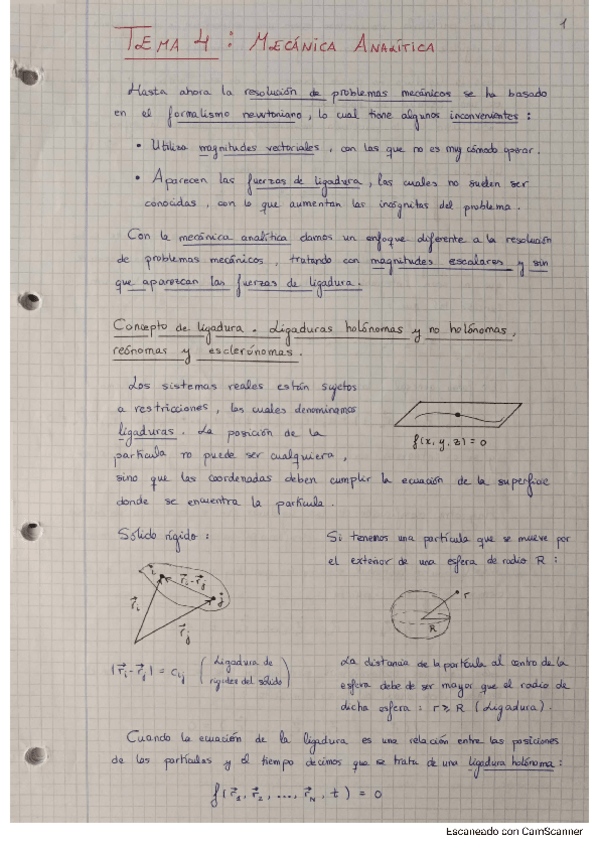 1
TEMA 4 : MECÁNICA ANALÍTICA
Hasta ahora la resolución de problemas mecánicos se ha basado
en el formalismo newtoniano, lo cual tiene algunos inconvenientes :
• Utiliza magnitudes vectoriales , con las que no es muy cómodo operar.
• Aparecen las fuerzas de ligadura , las cuales no suelen ser
conocidas , con lo que aumentan las incógnitas del problema .
Con la mecánica analítica damos un enfoque diferente a la resolución
de problemas mecánicos , tratando con magnitudes escalares y sin
que aparezcan las fuerzas de ligadura .
Concepto de ligadura . Ligaduras holónomas y no holónomas ,
reónomas y esclerónomas .
Los sistemas reales están sujetos
a restricciones , las cuales denominamos
ligaduras . La posición de la
partícula no puede ser cualquiera ,
sino que las coordenadas deben cumplir la ecuación de la superficie
donde se encuentra la partícula .
f(x, y, z) = 0
Sólido rígido :
i
r⃗i - r⃗j
j
r⃗i
r⃗j
|r⃗i - r⃗j| = cij (Ligadura de
rigidez del sólido)
Si tenemos una partícula que se mueve por
el exterior de una esfera de radio R :
r
R
La distancia de la partícula al centro de la
esfera debe de ser mayor que el radio de
dicha esfera : r ≥ R (Ligadura) .
Cuando la ecuación de la ligadura es una relación entre las posiciones
de las partículas y el tiempo decimos que se trata de una ligadura holónoma :
f(r⃗1, r⃗2, ..., r⃗N, t) = 0
Escaneado con CamScanner